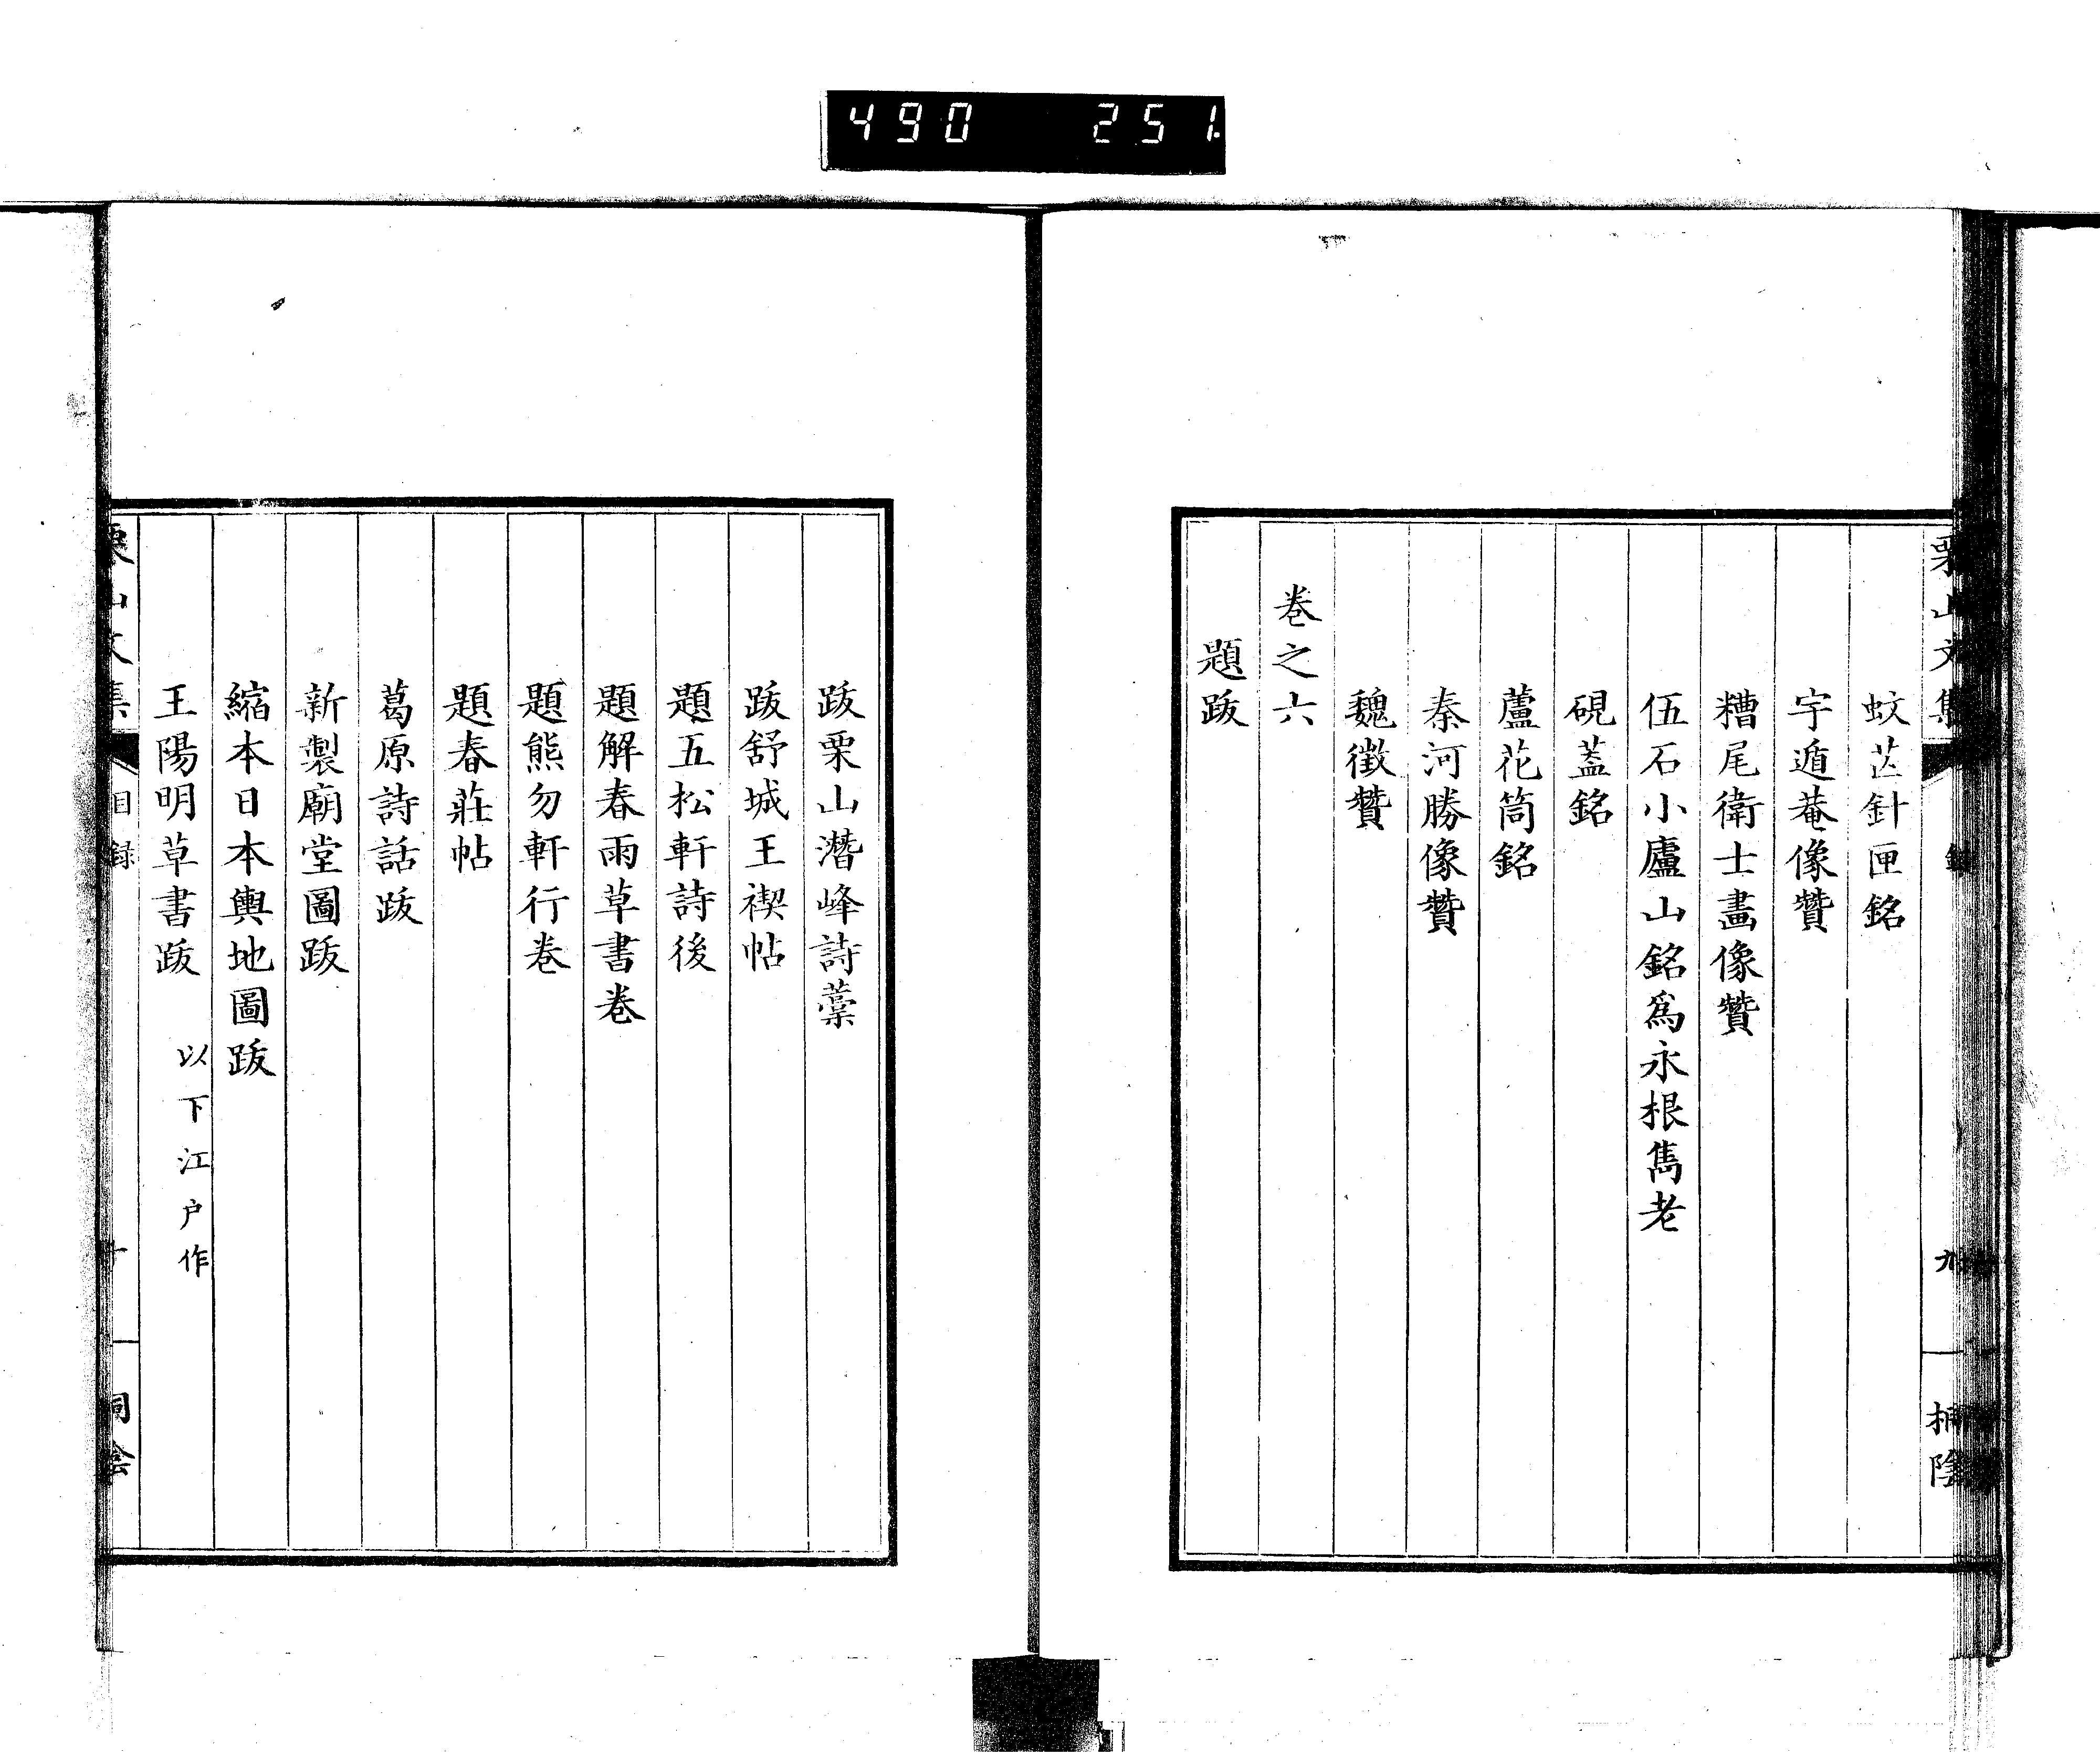 490 251
栗山文集
九
蚊芒針匣銘
宇遁菴像贊
糟尾衛士畫像贊
伍石小廬山銘為永根雋老
硯蓋銘
蘆花筒銘
秦河勝像贊
魏徵贊
卷之六
題跋
跋栗山潛峰詩藁
跋舒城王禊帖
題五松軒詩後
題解春雨草書卷
題熊勿軒行卷
題春莊帖
葛原詩話跋
新製廟堂圖跋
縮本日本輿地圖跋
王陽明草書跋 以下江户作
栗山文集 目録